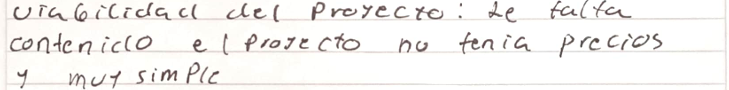 viabilidad del Proyecto: Le falta
contenido el Proyecto no tenia precios
y muy simple